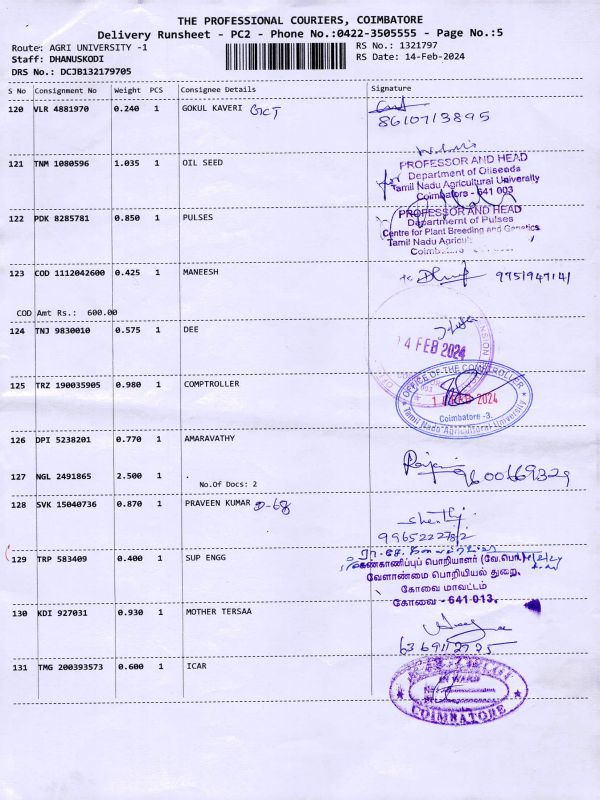 THE PROFESSIONAL COURIERS, COIMBATORE
Delivery Runsheet - PC2 - Phone No.:0422-3505555 - Page No.:5
Route: AGRI UNIVERSITY -1
RS No.: 1321797
Staff: DHANUSKODI
RS Date: 14-Feb-2024
DRS No.: DCJB132179705
S No Consignment No Weight PCS Consignee Details Signature
120 VLR 4881970 0.240 1 GOKUL KAVERI GCT
8610713895
121 TNM 1080596 1.035 1 OIL SEED
PROFESSOR AND HEAD
for Department of Oilseeds
Tamil Nadu Agricultural University
Coimbatore - 641 003
122 PDK 8285781 0.850 1 PULSES
PROFESSOR AND HEAD
Department of Pulses
Centre for Plant Breeding and Genetics
Tamil Nadu
123 COD 1112042600 0.425 1 MANEESH
9751947141
COD Amt Rs.: 600.00
124 TNJ 9830010 0.575 1 DEE
14 FEB 2024
125 TRZ 190035905 0.980 1 COMPTROLLER
OFFICE OF THE COMPTROLLER
14 FEB 2024
Coimbatore -3.
Tamil Nadu Agricultural University
126 DPI 5238201 0.770 1 AMARAVATHY
127 NGL 2491865 2.500 1 .
9600669329
No.Of Docs: 2
128 SVK 15040736 0.870 1 PRAVEEN KUMAR D-68
9965222782
129 TRP 583409 0.400 1 SUP ENGG
கண்காணிப்புப் பொறியாளர் (வே.பொ)
வேளாண்மை பொறியியல் துறை,
கோவை மாவட்டம்
கோவை - 641 013.
130 KDI 927031 0.930 1 MOTHER TERSAA
6369112725
131 TMG 200393573 0.600 1 ICAR
INWARD
COIMBATORE